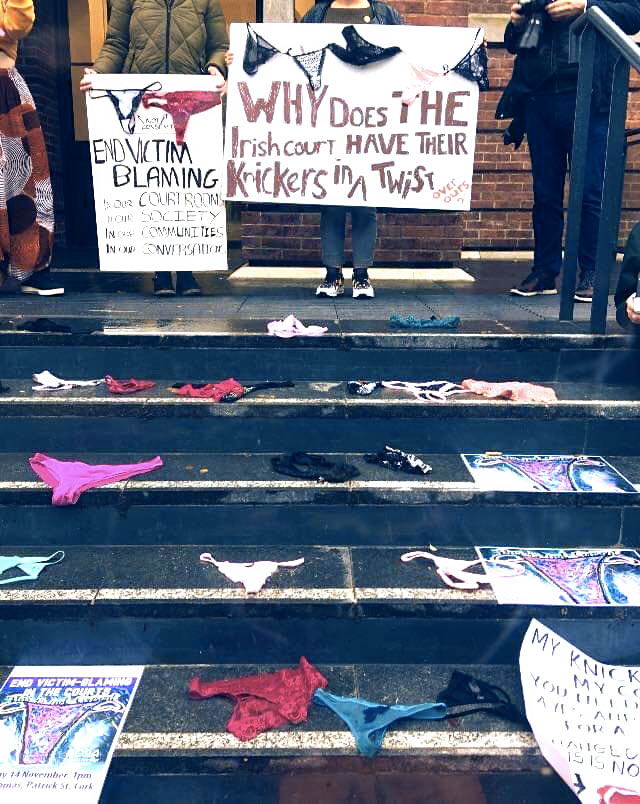 END VICTIM
BLAMING
IN OUR COURTROOMS
IN OUR SOCIETY
IN OUR COMMUNITIES
IN OUR CONVERSATION
WHY DOES THE
Irish court HAVE THEIR
Knickers in A TwisT
OVER
OURS?
END VICTIM-BLAMING
IN THE COURTS
14 November, 1pm
Patrick St. Cork
MY KNICK
MY CO
YOU
FOR A
IS IS NO